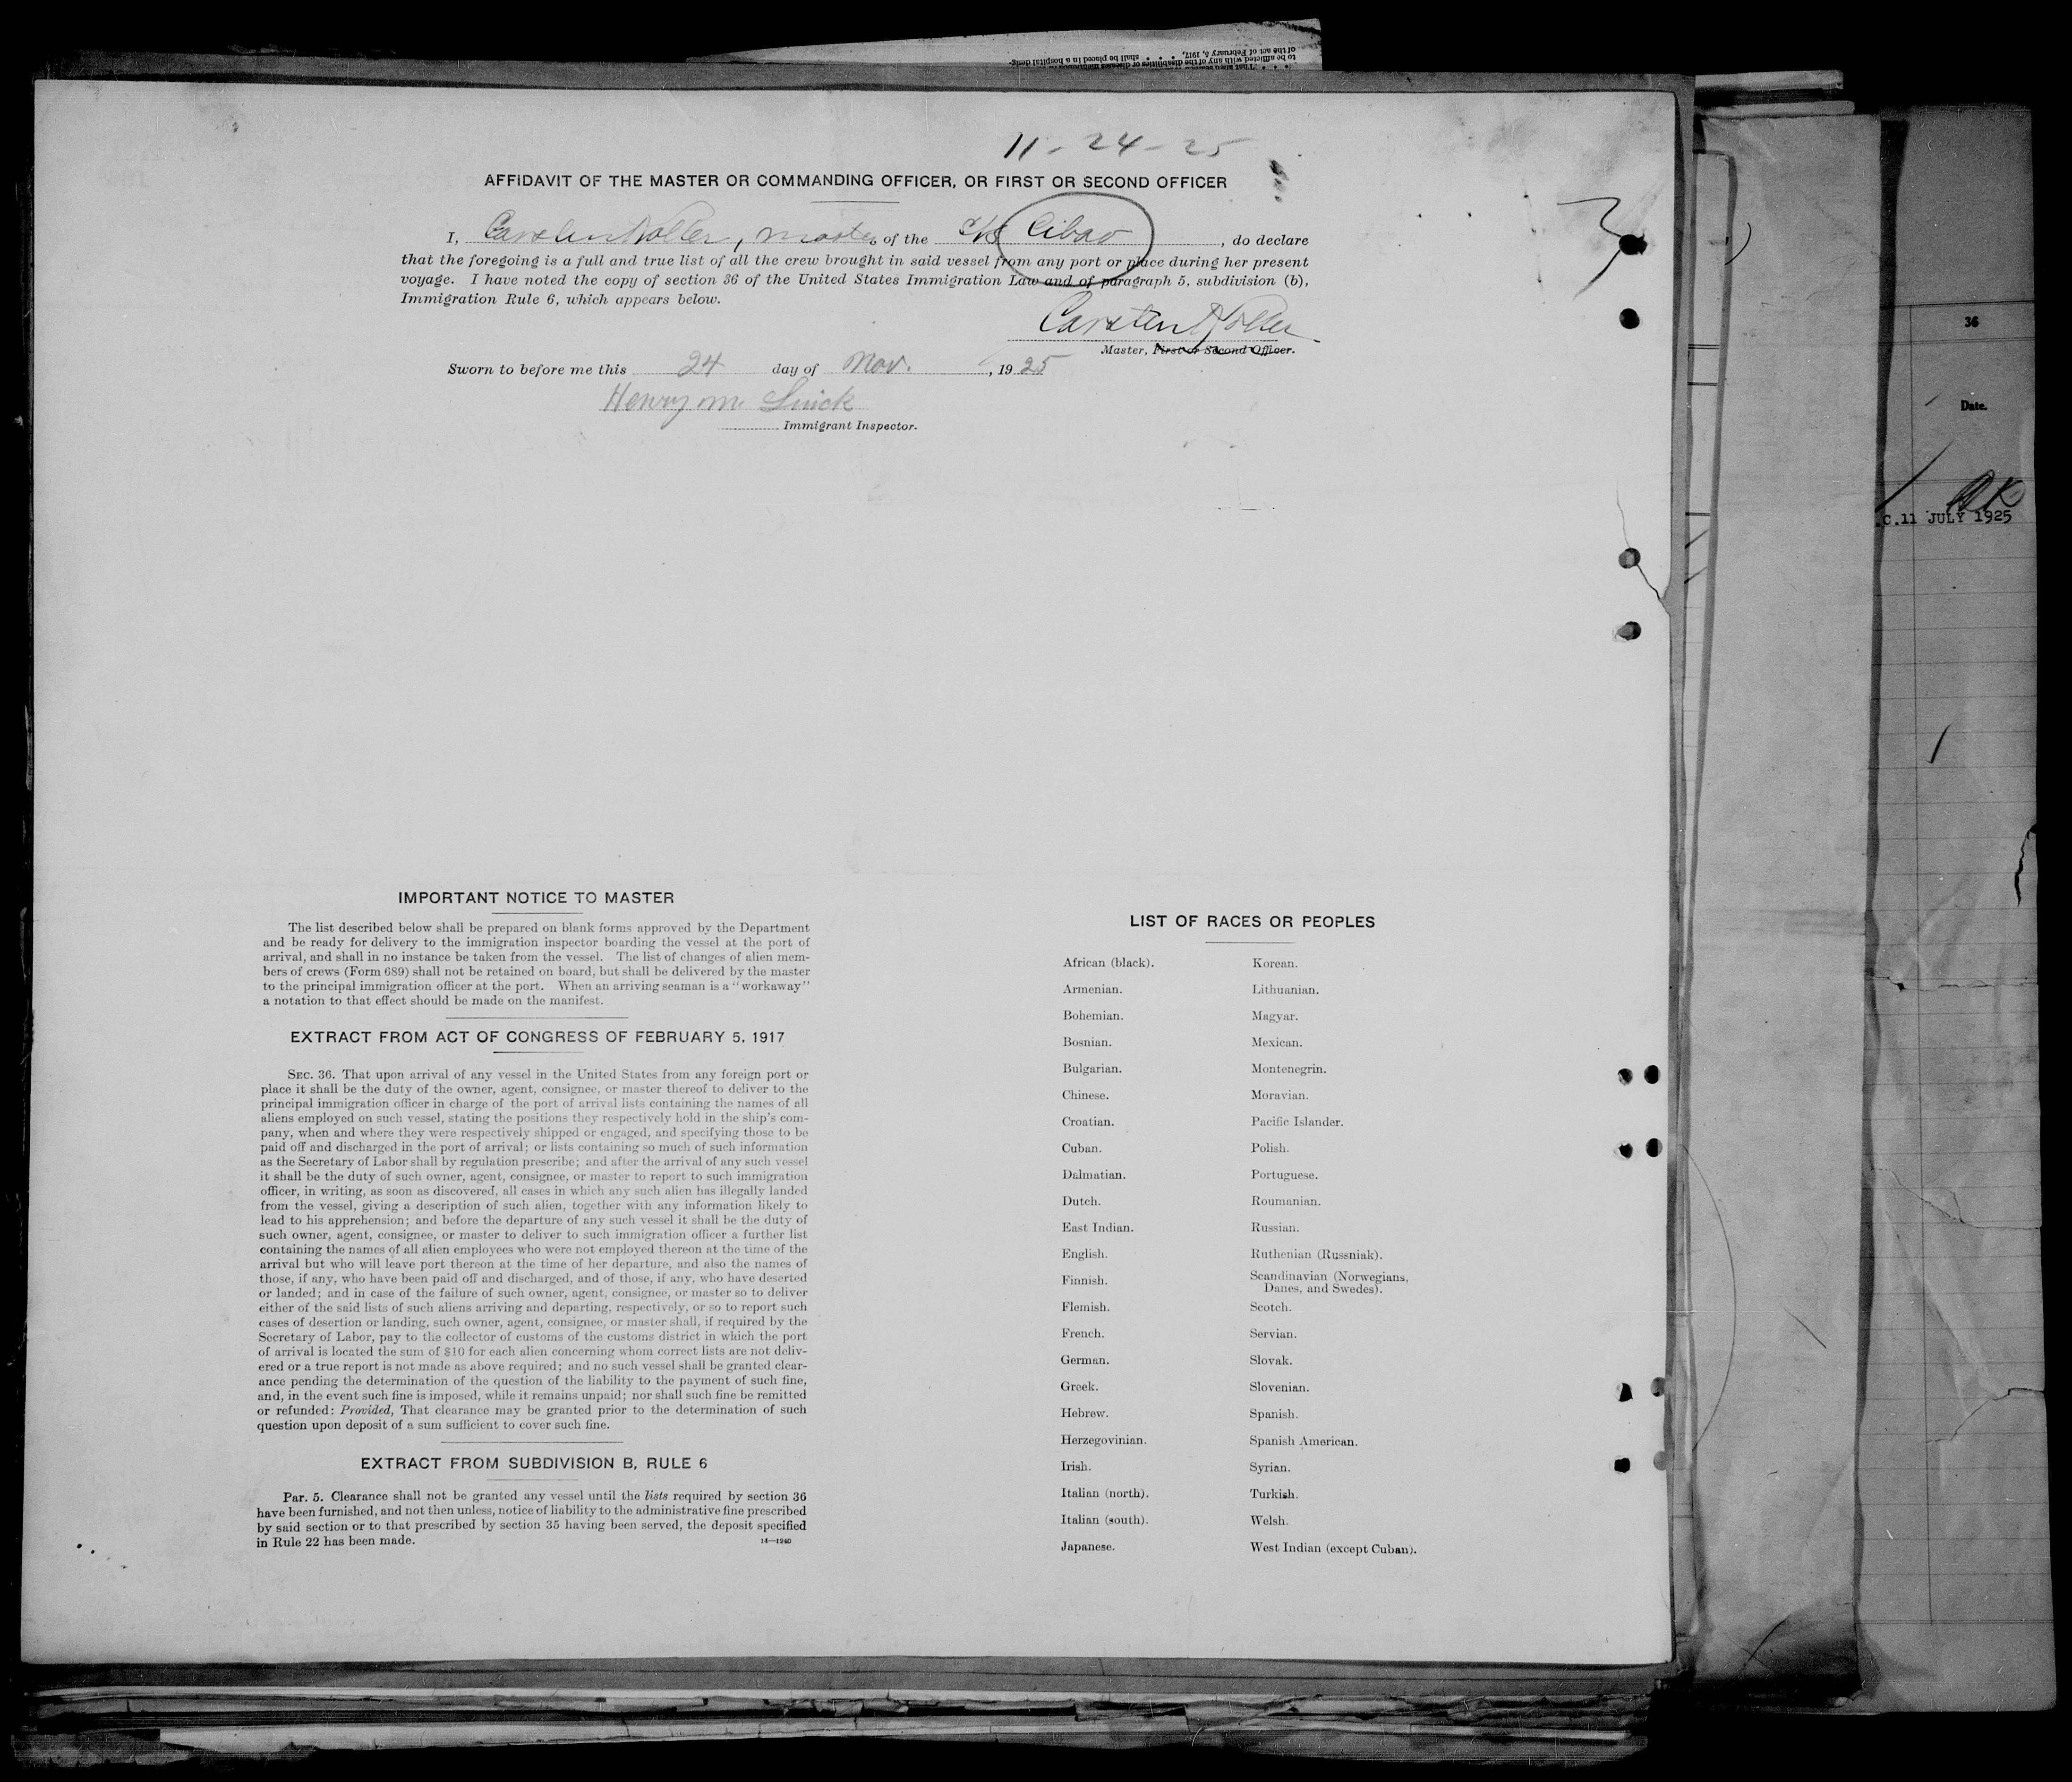 11-24-25
AFFIDAVIT OF THE MASTER OR COMMANDING OFFICER, OR FIRST OR SECOND OFFICER
I, Carsten Noller, master of the S/S Cibao, do declare
that the foregoing is a full and true list of all the crew brought in said vessel from any port or place during her present
voyage. I have noted the copy of section 36 of the United States Immigration Law and of paragraph 5, subdivision (b),
Immigration Rule 6, which appears below.
Carsten Noller
Master, First or Second Officer.
Sworn to before me this 24 day of Nov., 1925
Henry M.
Immigrant Inspector.
3
IMPORTANT NOTICE TO MASTER
The list described below shall be prepared on blank forms approved by the Department
and be ready for delivery to the immigration inspector boarding the vessel at the port of
arrival, and shall in no instance be taken from the vessel. The list of changes of alien mem-
bers of crews (Form 689) shall not be retained on board, but shall be delivered by the master
to the principal immigration officer at the port. When an arriving seaman is a "workaway"
a notation to that effect should be made on the manifest.
EXTRACT FROM ACT OF CONGRESS OF FEBRUARY 5, 1917
SEC. 36. That upon arrival of any vessel in the United States from any foreign port or
place it shall be the duty of the owner, agent, consignee, or master thereof to deliver to the
principal immigration officer in charge of the port of arrival lists containing the names of all
aliens employed on such vessel, stating the positions they respectively hold in the ship's com-
pany, when and where they were respectively shipped or engaged, and specifying those to be
paid off and discharged in the port of arrival; or lists containing so much of such information
as the Secretary of Labor shall by regulation prescribe; and after the arrival of any such vessel
it shall be the duty of such owner, agent, consignee, or master to report to such immigration
officer, in writing, as soon as discovered, all cases in which any such alien has illegally landed
from the vessel, giving a description of such alien, together with any information likely to
lead to his apprehension; and before the departure of any such vessel it shall be the duty of
such owner, agent, consignee, or master to deliver to such immigration officer a further list
containing the names of all alien employees who were not employed thereon at the time of the
arrival but who will leave port thereon at the time of her departure, and also the names of
those, if any, who have been paid off and discharged, and of those, if any, who have deserted
or landed; and in case of the failure of such owner, agent, consignee, or master so to deliver
either of the said lists of such aliens arriving and departing, respectively, or so to report such
cases of desertion or landing, such owner, agent, consignee, or master shall, if required by the
Secretary of Labor, pay to the collector of customs of the customs district in which the port
of arrival is located the sum of $10 for each alien concerning whom correct lists are not deliv-
ered or a true report is not made as above required; and no such vessel shall be granted clear-
ance pending the determination of the question of the liability to the payment of such fine,
and, in the event such fine is imposed, while it remains unpaid; nor shall such fine be remitted
or refunded: Provided, That clearance may be granted prior to the determination of such
question upon deposit of a sum sufficient to cover such fine.
EXTRACT FROM SUBDIVISION B, RULE 6
Par. 5. Clearance shall not be granted any vessel until the lists required by section 36
have been furnished, and not then unless, notice of liability to the administrative fine prescribed
by said section or to that prescribed by section 35 having been served, the deposit specified
in Rule 22 has been made.
14—1240
LIST OF RACES OR PEOPLES
African (black).
Armenian.
Bohemian.
Bosnian.
Bulgarian.
Chinese.
Croatian.
Cuban.
Dalmatian.
Dutch.
East Indian.
English.
Finnish.
Flemish.
French.
German.
Greek.
Hebrew.
Herzegovinian.
Irish.
Italian (north).
Italian (south).
Japanese.
Korean.
Lithuanian.
Magyar.
Mexican.
Montenegrin.
Moravian.
Pacific Islander.
Polish.
Portuguese.
Roumanian.
Russian.
Ruthenian (Russniak).
Scandinavian (Norwegians,
Danes, and Swedes).
Scotch.
Servian.
Slovak.
Slovenian.
Spanish.
Spanish American.
Syrian.
Turkish.
Welsh.
West Indian (except Cuban).
to be afflicted with any of the disabilities or diseases
of the act of February 5, 1917, . . . shall be placed in a hospital desig-
36
Date.
OK
.C.11 JULY 1925